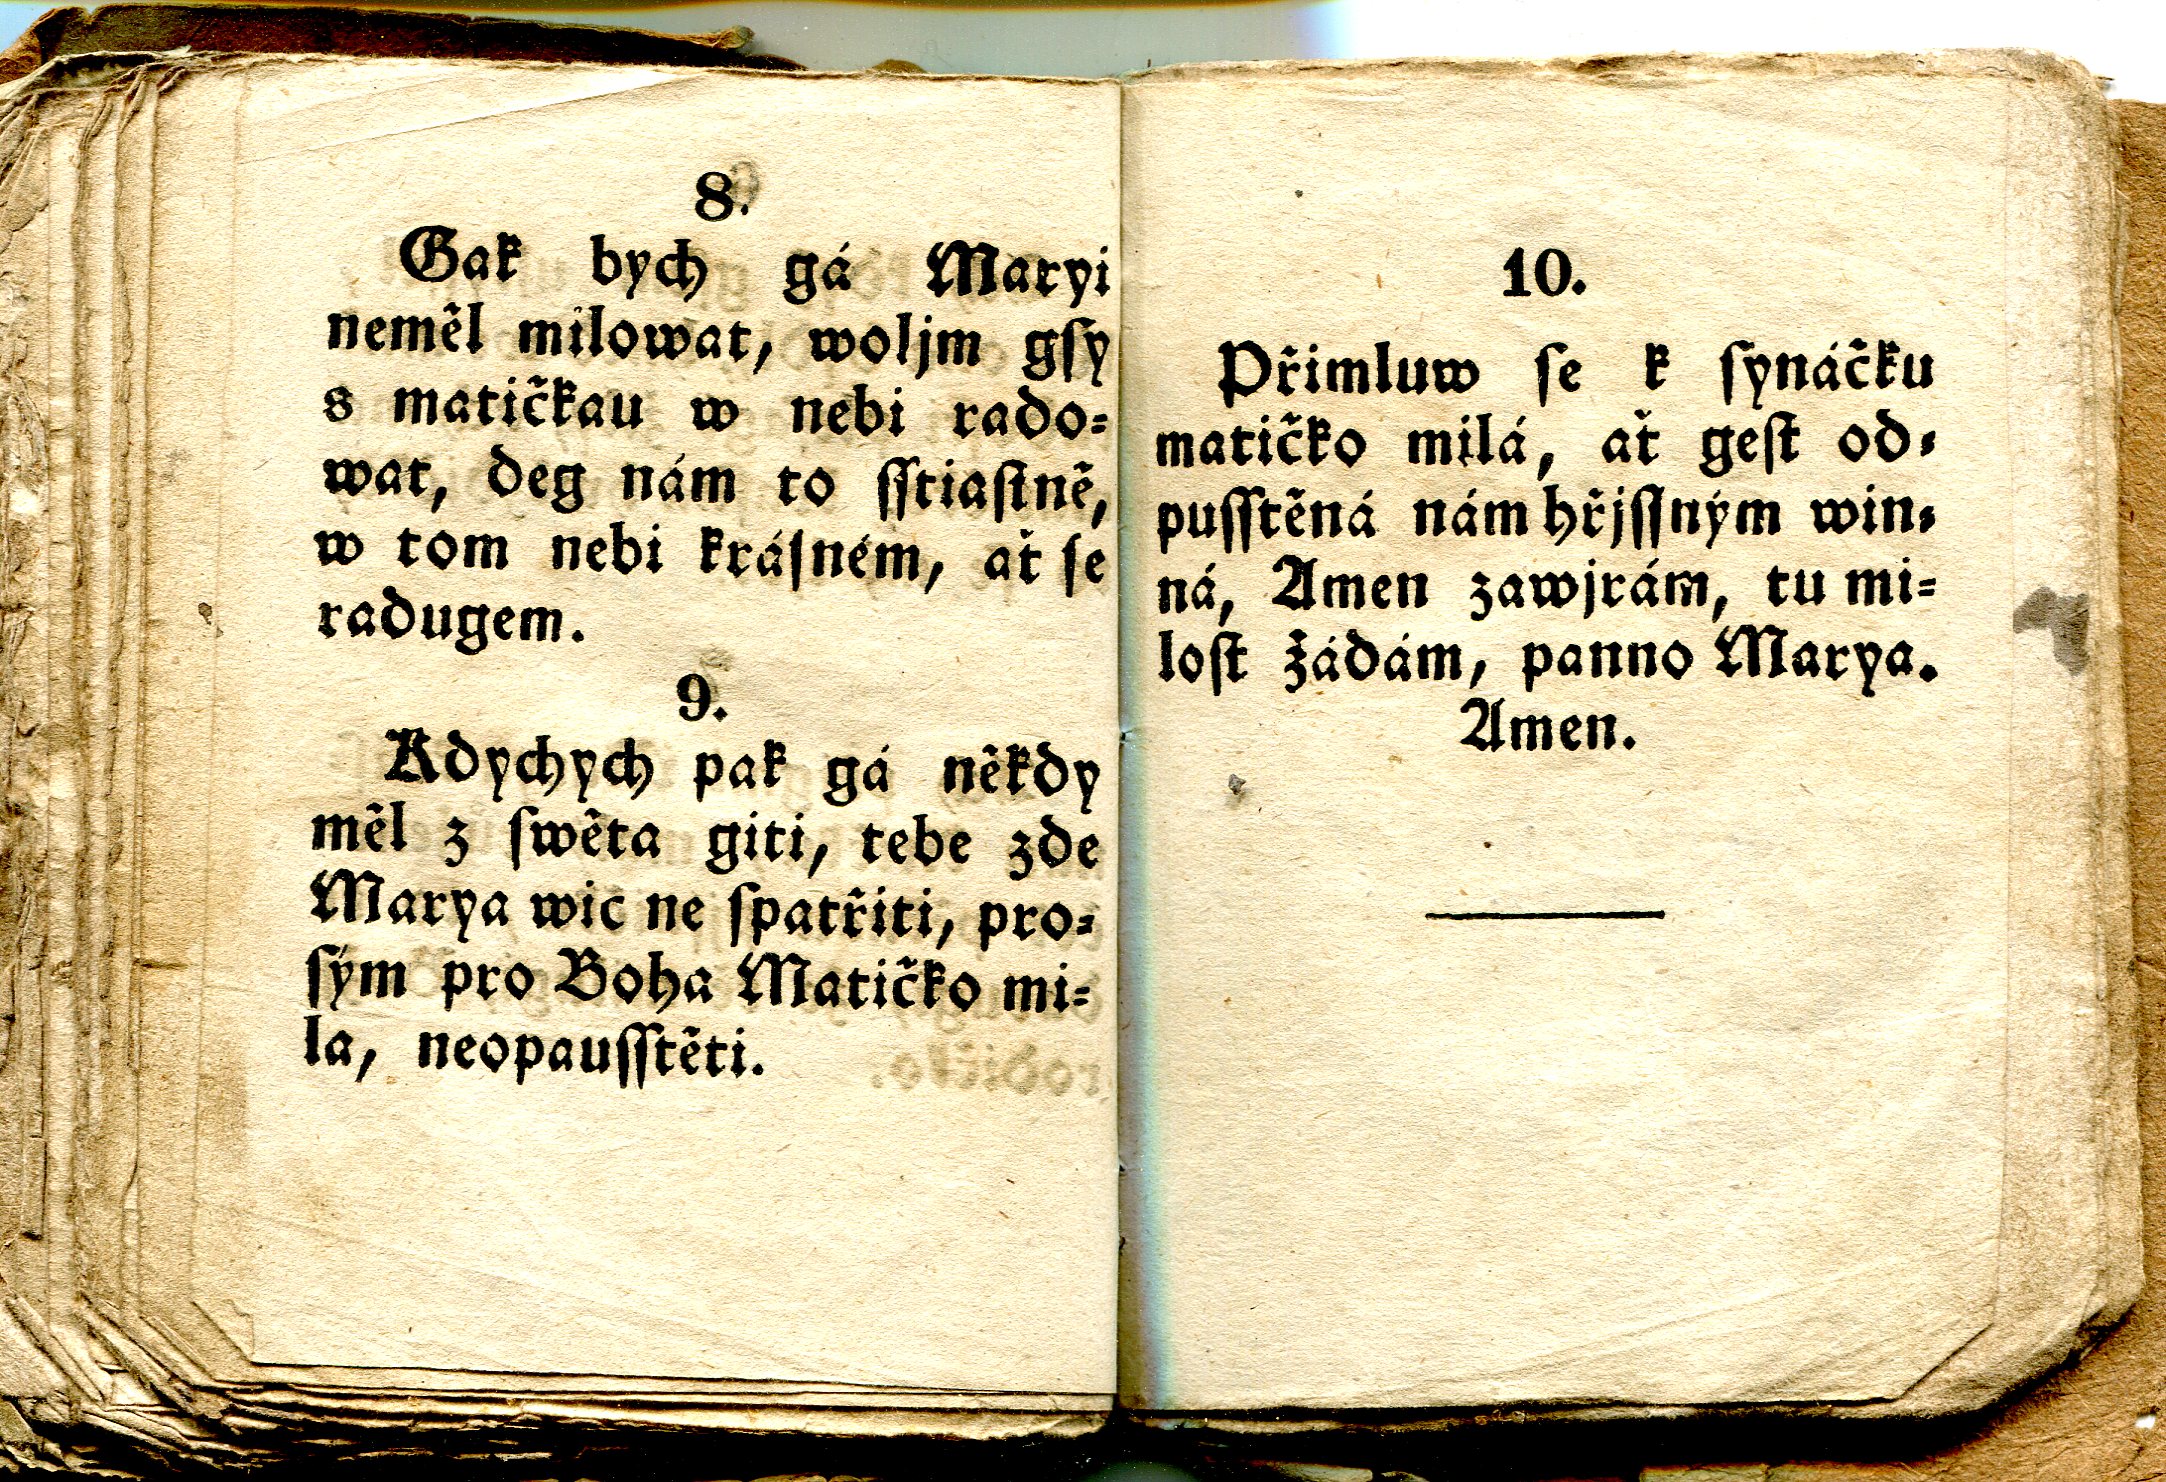 8.
Gak bych gá Maryi
neměl milowat, woljm gsy
s matičkau w nebi rado=
wat, deg nám to sstiastně,
w tom nebi krásném, ať se
radugem.
9.
Kdychych pak gá někdy
měl z swěta giti, tebe zde
Marya wic ne spatřiti, pro=
sým pro Boha Matičko mi=
la, neopausstěti.
10.
Přimluw se k synáčku
matičko milá, ať gest od=
pusstěná nám hřjssným win=
ná, Amen zawjrám, tu mi=
lost žádám, panno Marya.
Amen.